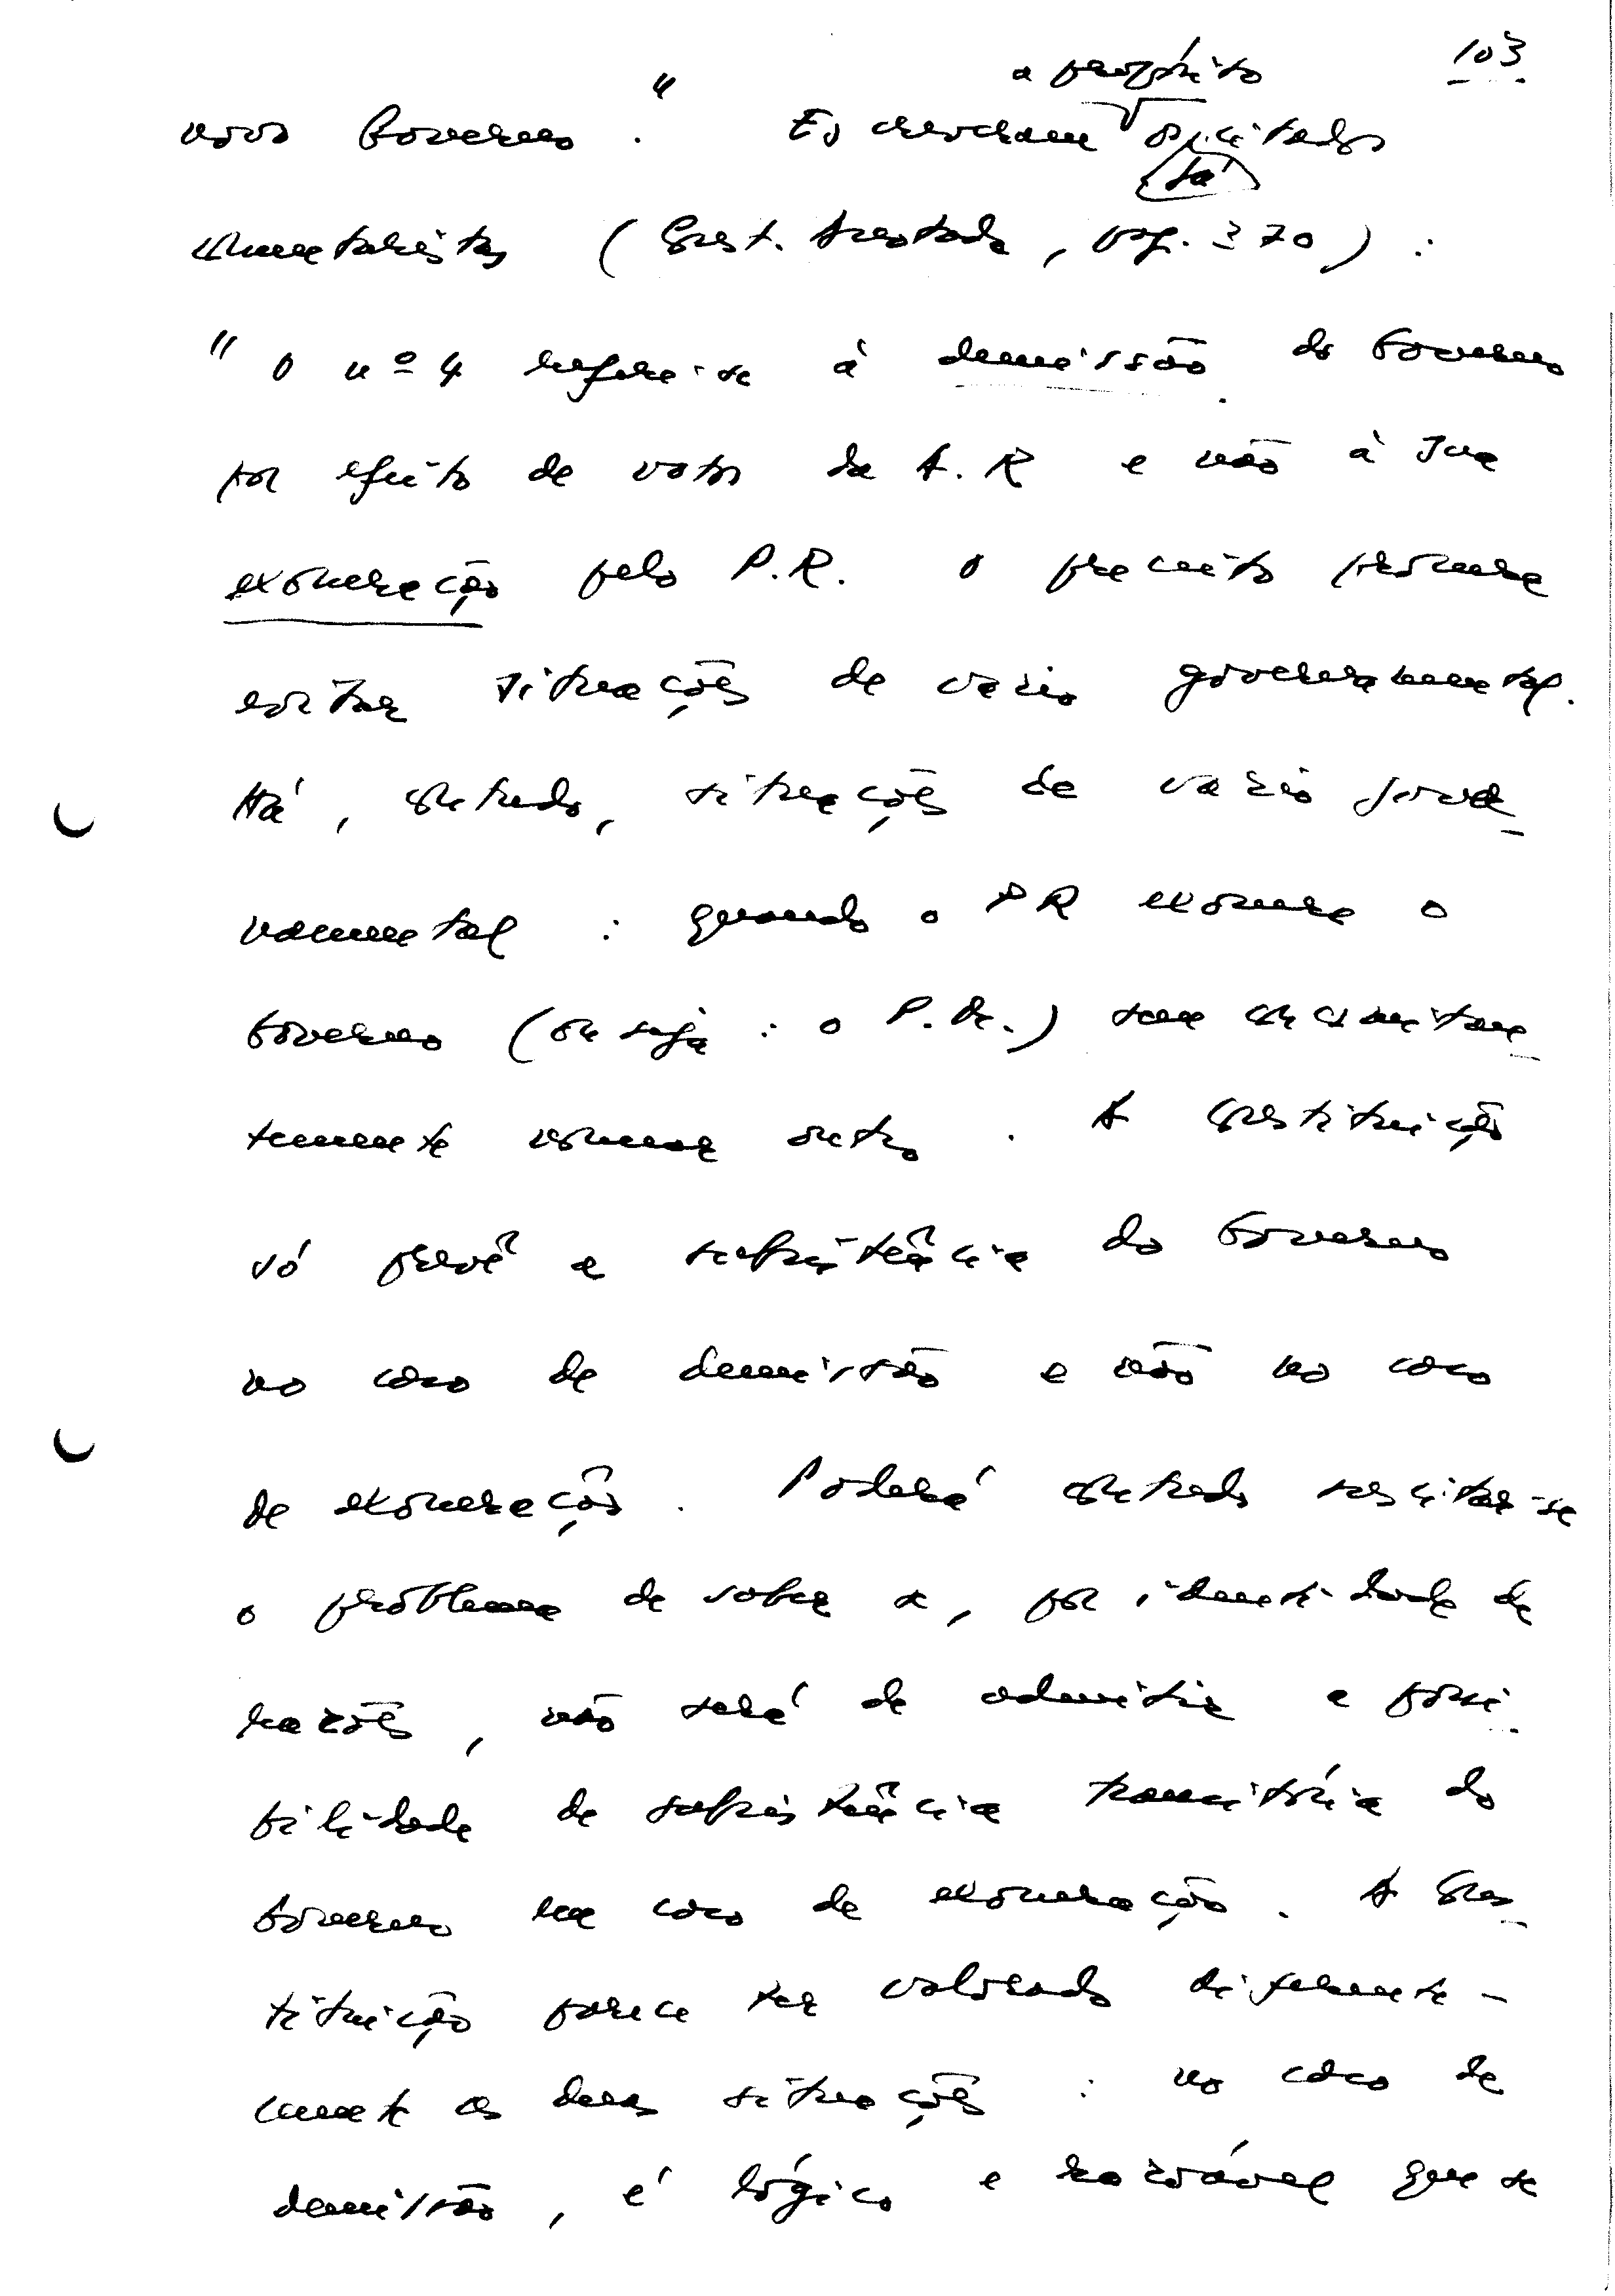 103
a propósito
novo Governo." Escreveram os citados
já
comentaristas (Const. Anotada, pág. 370) :
" O nº 4 refere-se à demissão do Governo
por efeito de votos da A.R e não à sua
exoneração pelo P.R. O preceito procura
evitar situações de vazio governamental.
Há, contudo, situações de vazio gover-
namental : quando o PR exonera o
Governo (ou seja : o P.M.) sem concomitan-
temente nomear outro. A Constituição
só prevê a subsistência do Governo
no caso de demissão e não no caso
de exoneração. Poderá contudo suscitar-se
o problema de saber se, por identidade de
razões, não será de admitir a possi-
bilidade de subsistência transitória do
Governo em caso de exoneração. A Cons-
tituição parece ter valorado diferente-
mente as duas situações : no caso de
demissão, é lógico e razoável que se